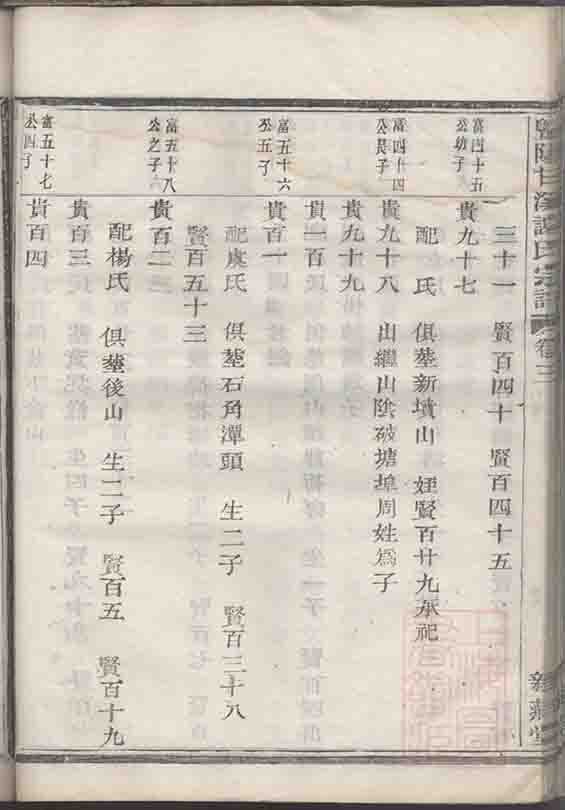 暨陽甘溪譚氏宗譜 卷三
三十一 賢百四十 賢百四十五
富四十五公幼子
貴九十七
配 氏 俱塟新墳山 姪賢百廿九承祀
富四十四公長子
貴九十八 出繼山陰破塘埠周姓爲子
貴九十九
貴一百
富五十六公五子
貴百一
配虞氏 俱塟石角潭頭 生二子 賢百三十八
賢百五十三
富五十八公之子
貴百二
貴百三
配楊氏 俱塟後山 生二子 賢百五 賢百十九
富五十七公四子
貴百四